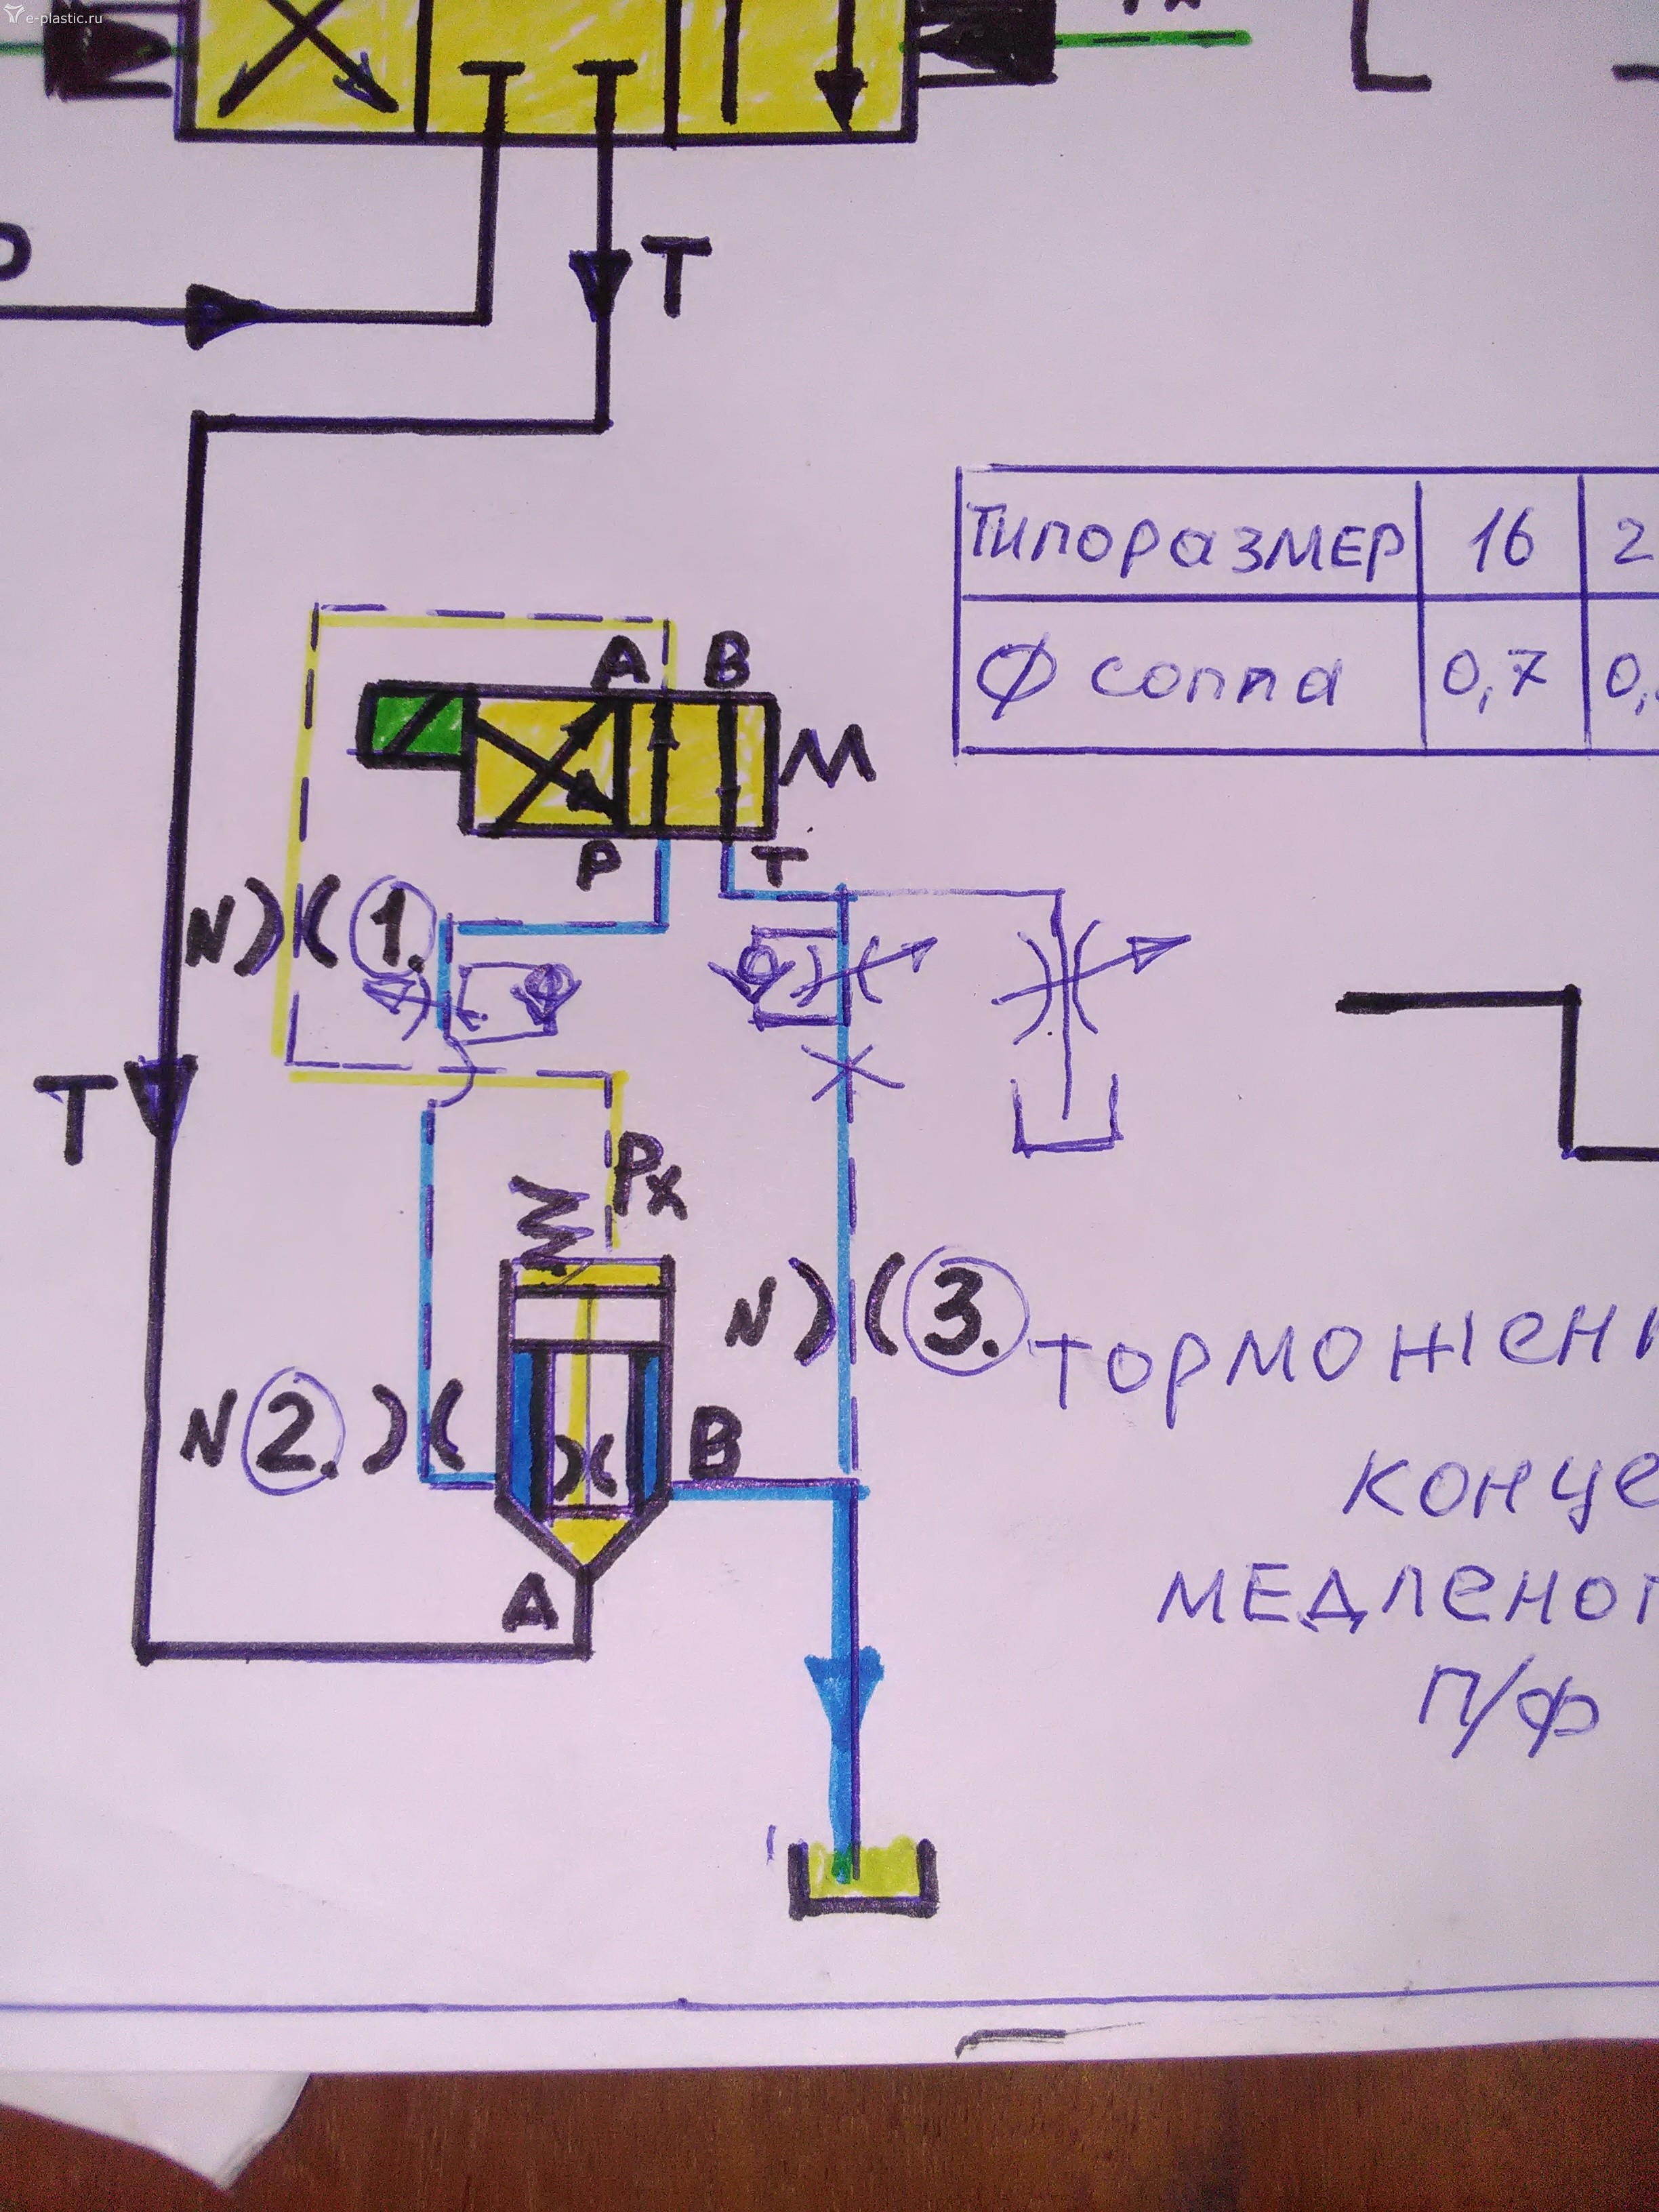 e-plastic.ru
P
T
ТИПОРАЗМЕР 16 2
Ф сопла 0,7 0,
A B
M
P T
N 1.
T
Px
N 3.
ТОРМОЖЕНИ
N 2. B
КОНЦЕ
A
МЕДЛЕНОГ
П/Ф